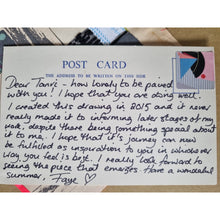 POST CARD
THE ADDRESS TO BE WRITTEN ON THIS SIDE
Dear Tanvi - how lovely to be paired
with you! I hope that you are doing well.
I created this drawing in 2015 and it never
really made it to informing later stages of my
work, despite there being something special about
it to me. I hope that it's journey can now
be fulfilled as inspiration to you in whichever
way you feel is best. I really look forward to
seeing the piece that emerges. Have a wonderful
summer, Faye ♡